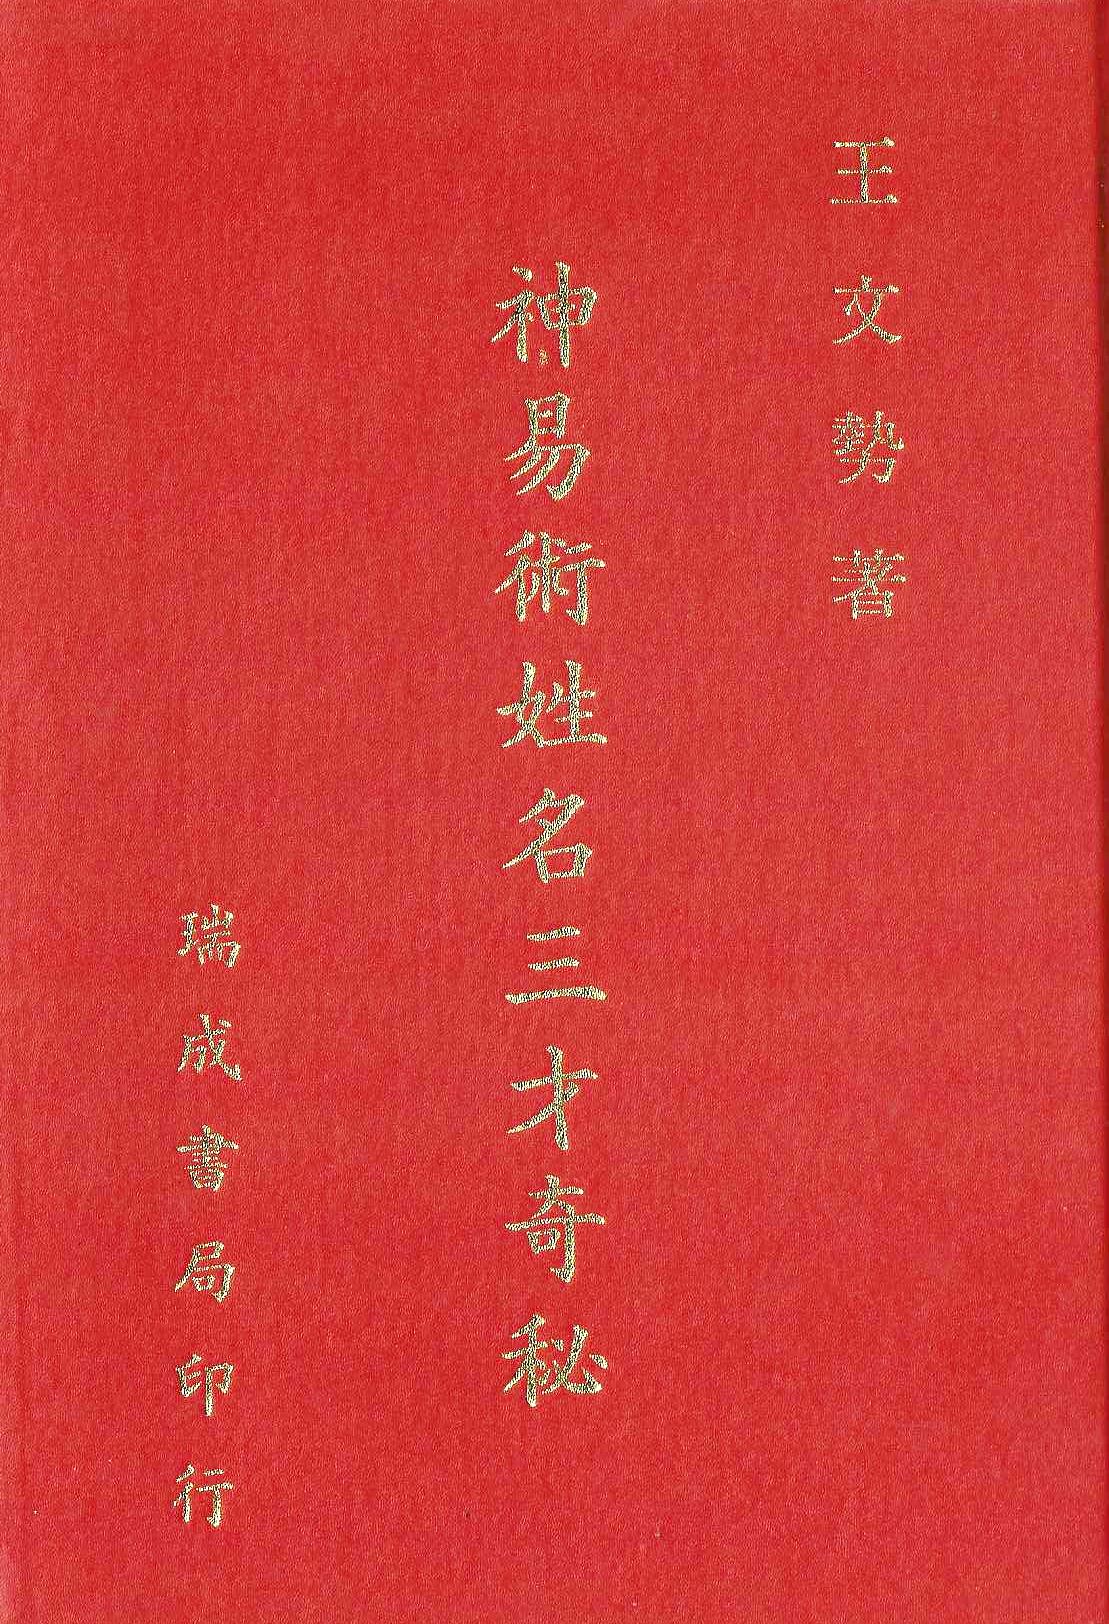 王文勢著
神易術姓名三才奇秘
瑞成書局印行